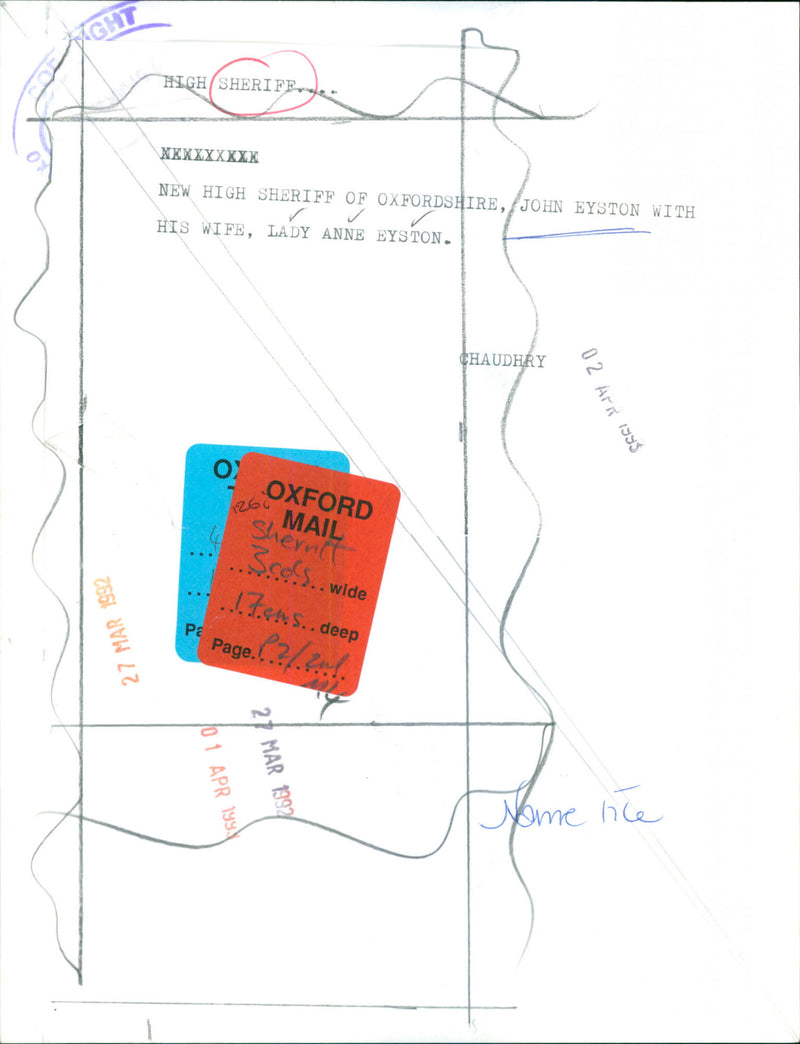 HIGH SHERIFF....
NEW HIGH SHERIFF OF OXFORDSHIRE, JOHN EYSTON WITH
HIS WIFE, LADY ANNE EYSTON.
CHAUDHRY
02 APR 1993
OXFORD
MAIL
Sheriff
3cols wide
17ems deep
Page
27 MAR 1992
27 MAR 1992
01 APR 1993
Name